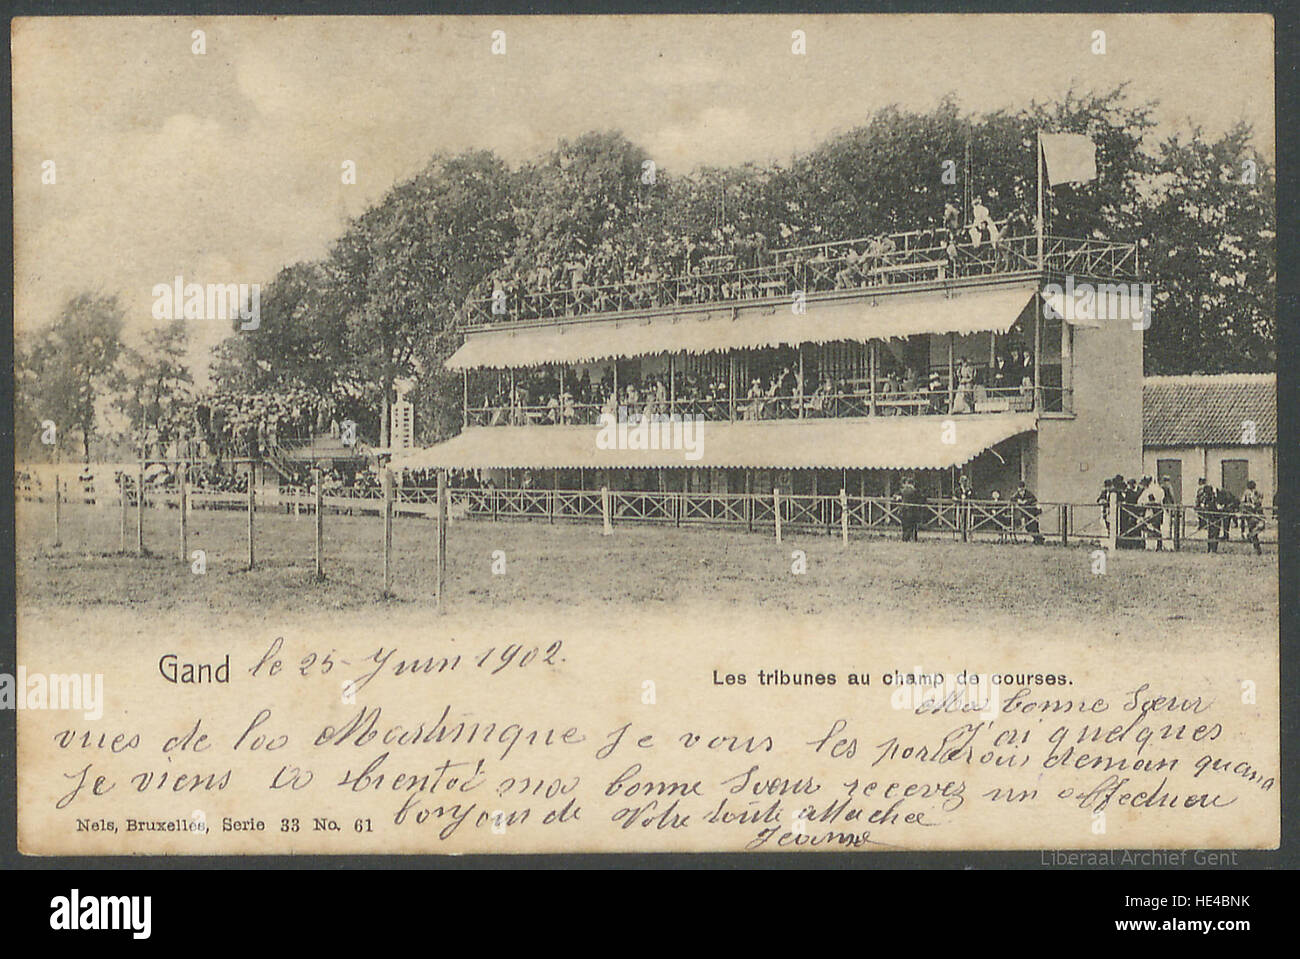 Gand le 25 Juin 1902.
Les tribunes au champ de courses.
Ma bonne Sœur
J'ai quelques
vues de la Martinique je vous les porterais demain quand
je viens a bientot ma bonne Sœur recevez un affectueux
bonjour de Votre toute attachée
Jeanne
Nels, Bruxelles, Serie 33 No. 61
Liberaal Archief Gent
alamy
alamy
HE4BNK
www.alamy.com